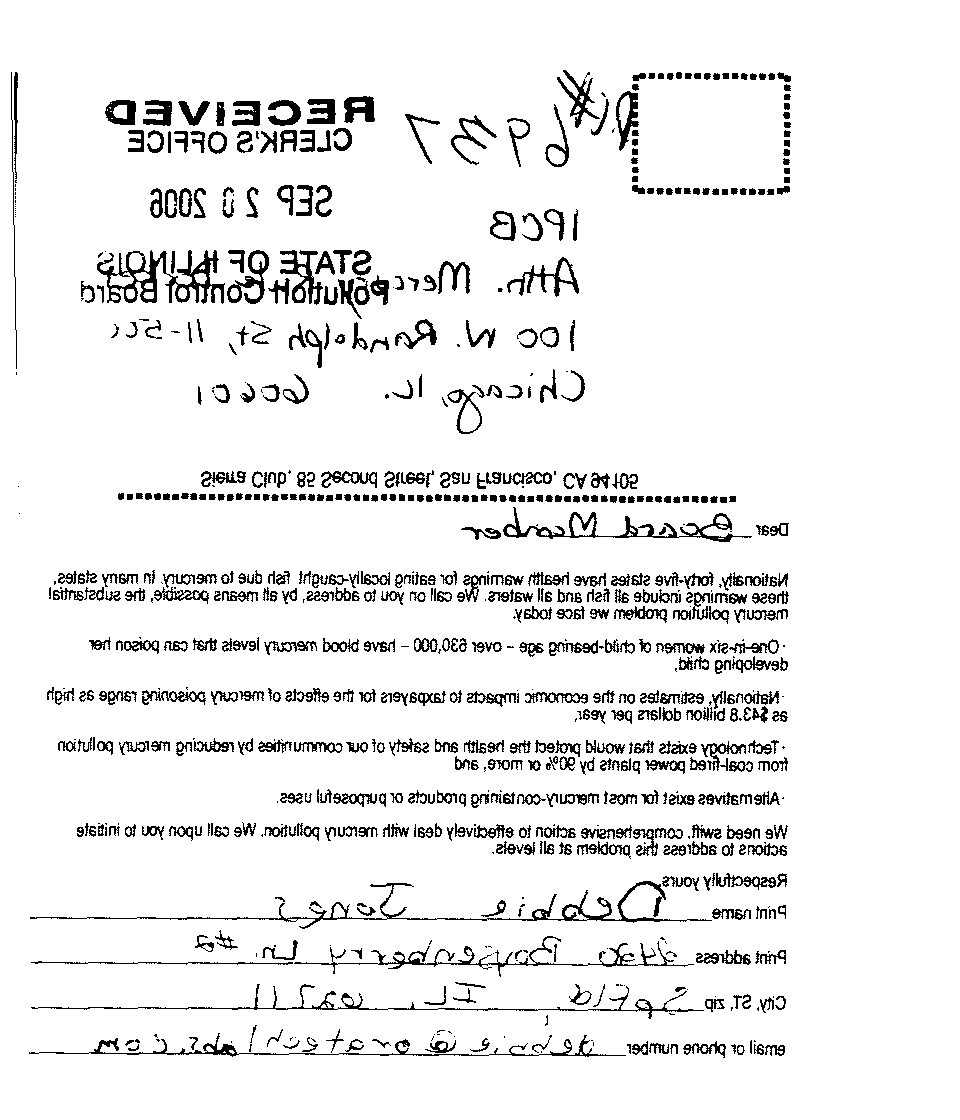 RECEIVED
CLERK'S OFFICE
P.C.#6937
SEP 20 2006
IPCB
STATE OF ILLINOIS
Attn. Mercury
Pollution Control Board
100 N. Randolph St, 11-500
Chicago, IL. 60601
Sierra Club, 85 Second Street, San Francisco, CA 94105
Dear Board Member
Nationally, forty-five states have health warnings for eating locally-caught fish due to mercury. In many states,
these warnings include all fish and all waters. We call on you to address, by all means possible, the substantial
mercury pollution problem we face today.
·One-in-six women of child-bearing age – over 630,000 – have blood mercury levels that can poison her
developing child,
·Nationally, estimates on the economic impacts to taxpayers for the effects of mercury poisoning range as high
as $43.8 billion dollars per year,
·Technology exists that would protect the health and safety of our communities by reducing mercury pollution
from coal-fired power plants by 90% or more, and
·Alternatives exist for most mercury-containing products or purposeful uses.
We need swift, comprehensive action to effectively deal with mercury pollution. We call upon you to initiate
actions to address this problem at all levels.
Respectfully yours,
Print name Debbie Jones
Print address 2420 Boysenberry Ln. #2
City, ST, zip Spfld. IL, 62711
email or phone number debbie@oratechlabs.com